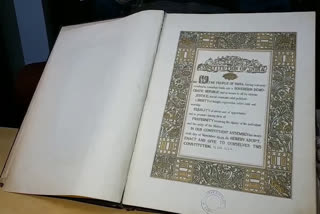 WE, THE PEOPLE OF INDIA, having solemnly
resolved to constitute India into a SOVEREIGN DEMO-
CRATIC REPUBLIC and to secure to all its citizens:
JUSTICE, social, economic and political;
LIBERTY of thought, expression, belief, faith and
worship;
EQUALITY of status and of opportunity;
and to promote among them all
FRATERNITY assuring the dignity of the individual
and the unity of the Nation;
IN OUR CONSTITUENT ASSEMBLY this twenty-
sixth day of November, 1949, do HEREBY ADOPT,
ENACT AND GIVE TO OURSELVES THIS
CONSTITUTION.